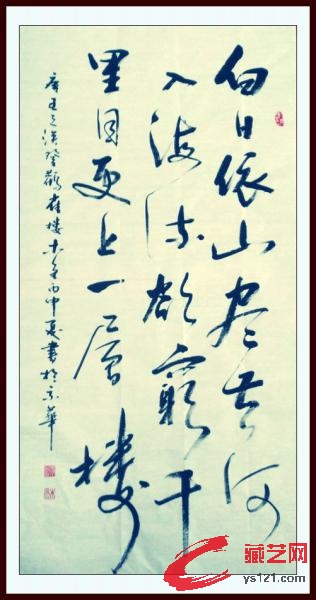 白日依山尽黄河
入海流欲窮千
里目更上一層樓
唐王之涣登鹳雀樓 丙申夏書於京華
藏艺网
ys121.com